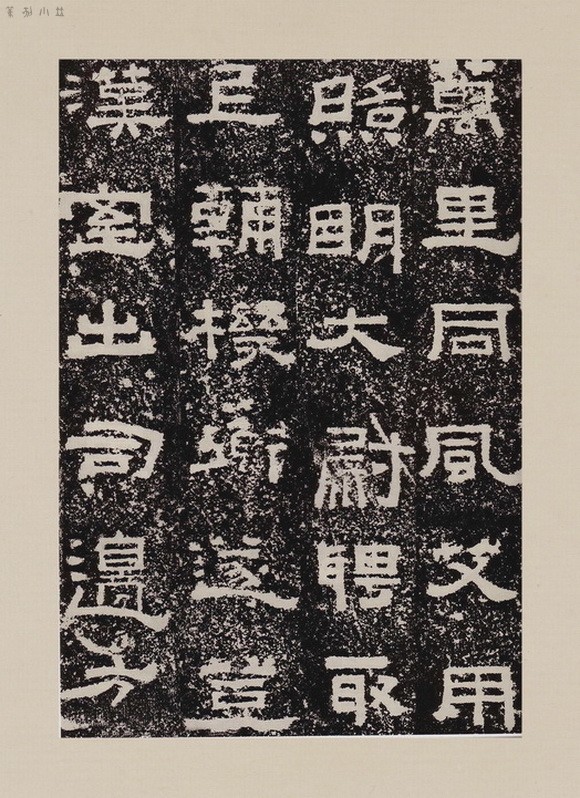 萬里同風艾用
照明大尉聘取
匡輔機衡遂登
漢室出司邊方